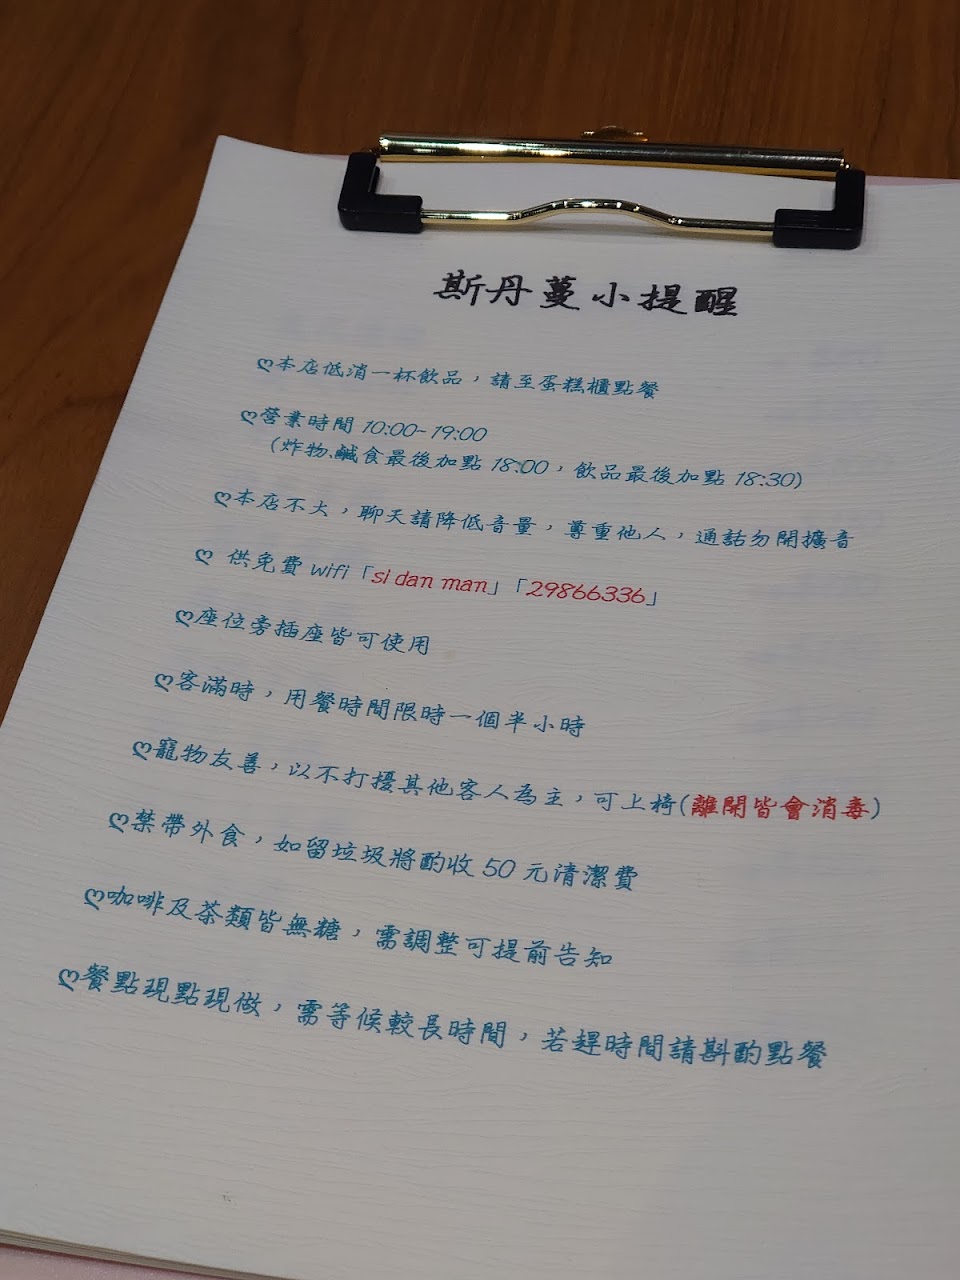 斯丹蔓小提醒
ღ本店低消一杯飲品，請至蛋糕櫃點餐
ღ營業時間 10:00~19:00
(炸物、鹹食最後加點 18:00，飲品最後加點 18:30)
ღ本店不大，聊天請降低音量，尊重他人，通話勿開擴音
ღ 供免費 wifi「si dan man」「29866336」
ღ座位旁插座皆可使用
ღ客滿時，用餐時間限時一個半小時
ღ寵物友善，以不打擾其他客人為主，可上椅(離開皆會消毒)
ღ禁帶外食，如留垃圾將酌收 50 元清潔費
ღ咖啡及茶類皆無糖，需調整可提前告知
ღ餐點現點現做，需等候較長時間，若趕時間請斟酌點餐